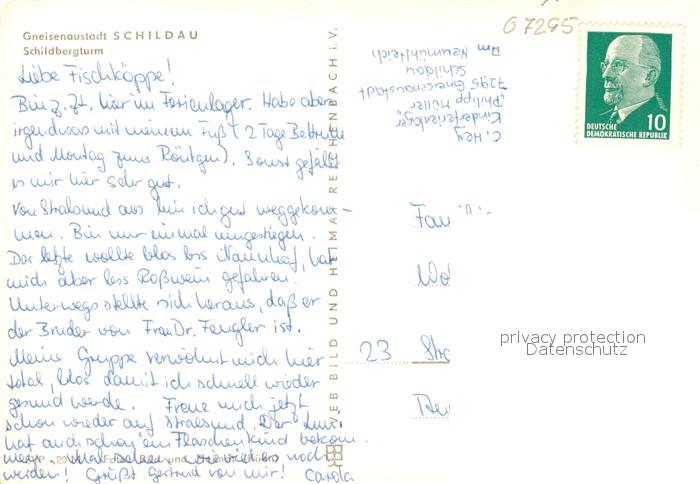 Gneisenaustadt SCHILDAU
Schildbergturm
Liebe Fischköppe!
Bin z. Zt. hier im Ferienlager. Habe aber
irgendwas mit meinem Fuß (2 Tage Bettruhe
und Montag zum Röntgen). Sonst gefällt
es mir hier sehr gut.
Von Stralsund aus bin ich gut weggekom-
men. Bin nur einmal umgestiegen.
Der letzte wollte blos bis Naunhof, hat
mich aber bis Roßwein gefahren.
Unterwegs stellte sich heraus, daß er
der Bruder von Frau Dr. Fengler ist.
Meine Gruppe verwöhnt mich hier
total, blos damit ich schnell wieder
gesund werde. Freue mich jetzt
schon wieder auf Stralsund. Der
hat auch schon ein Flaschenkind bekom-
men. Mal sehen, wie viele noch
werden! Grüßt Gertrud von mir! Carola
VEB BILD UND HEIMAT REICHENBACH i. V.
07295
C. Hey
Kinderferienlager
"Philipp Müller"
7295 Gneisenaustadt
Schildau
Am Neumühlteich
DEUTSCHE
DEMOKRATISCHE REPUBLIK
10
Fam
23 Str
privacy protection
Datenschutz